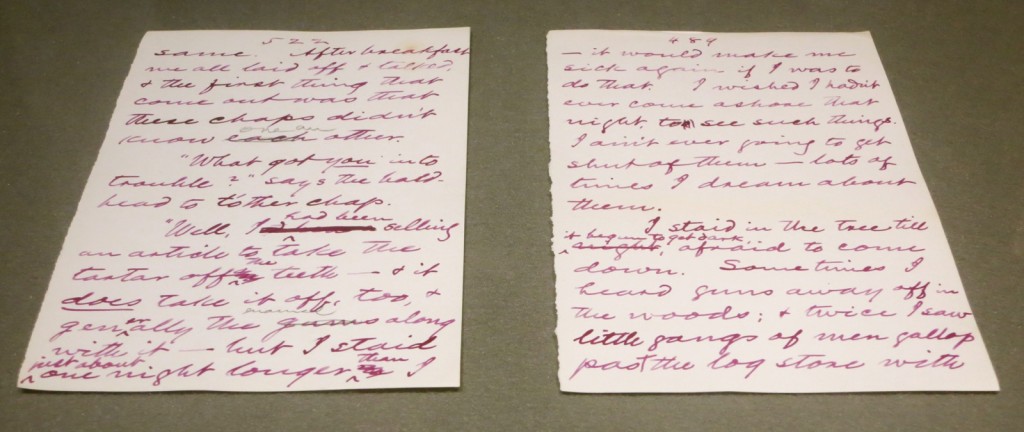 522
same. After breakfast
we all laid off & talked,
& the first thing that
come out was that
these chaps didn't
one an
know each other.
"What got you into
trouble?" says the bald-
head to t'other chap.
had been
"Well, I selling
an article to take the
the
tartar off teeth — & it
does take it off, too, &
enamel
generally the gums along
with it — but I staid
just about than
one night longer I
489
— it would make me
sick again if I was to
do that. I wished I hadn't
ever come ashore that
night, to see such things.
I ain't ever going to get
shut of them — lots of
times I dream about
them.
I staid in the tree till
it begun to get dark,
night, afraid to come
down. Sometimes I
heard guns away off in
the woods; & twice I saw
little gangs of men gallop
past the log store with